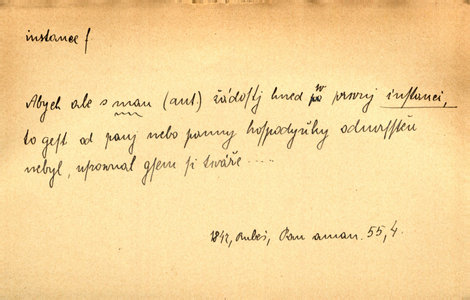 instance f
Abych ale s mau (aut.) žádostj hned w prwnj instanci,
to gest od panj nebo panny hospodyňky odmrsstěn
nebyl, uprawal gsem si twáře ....
1842, Rubeš, Pan aman. 55, 4.